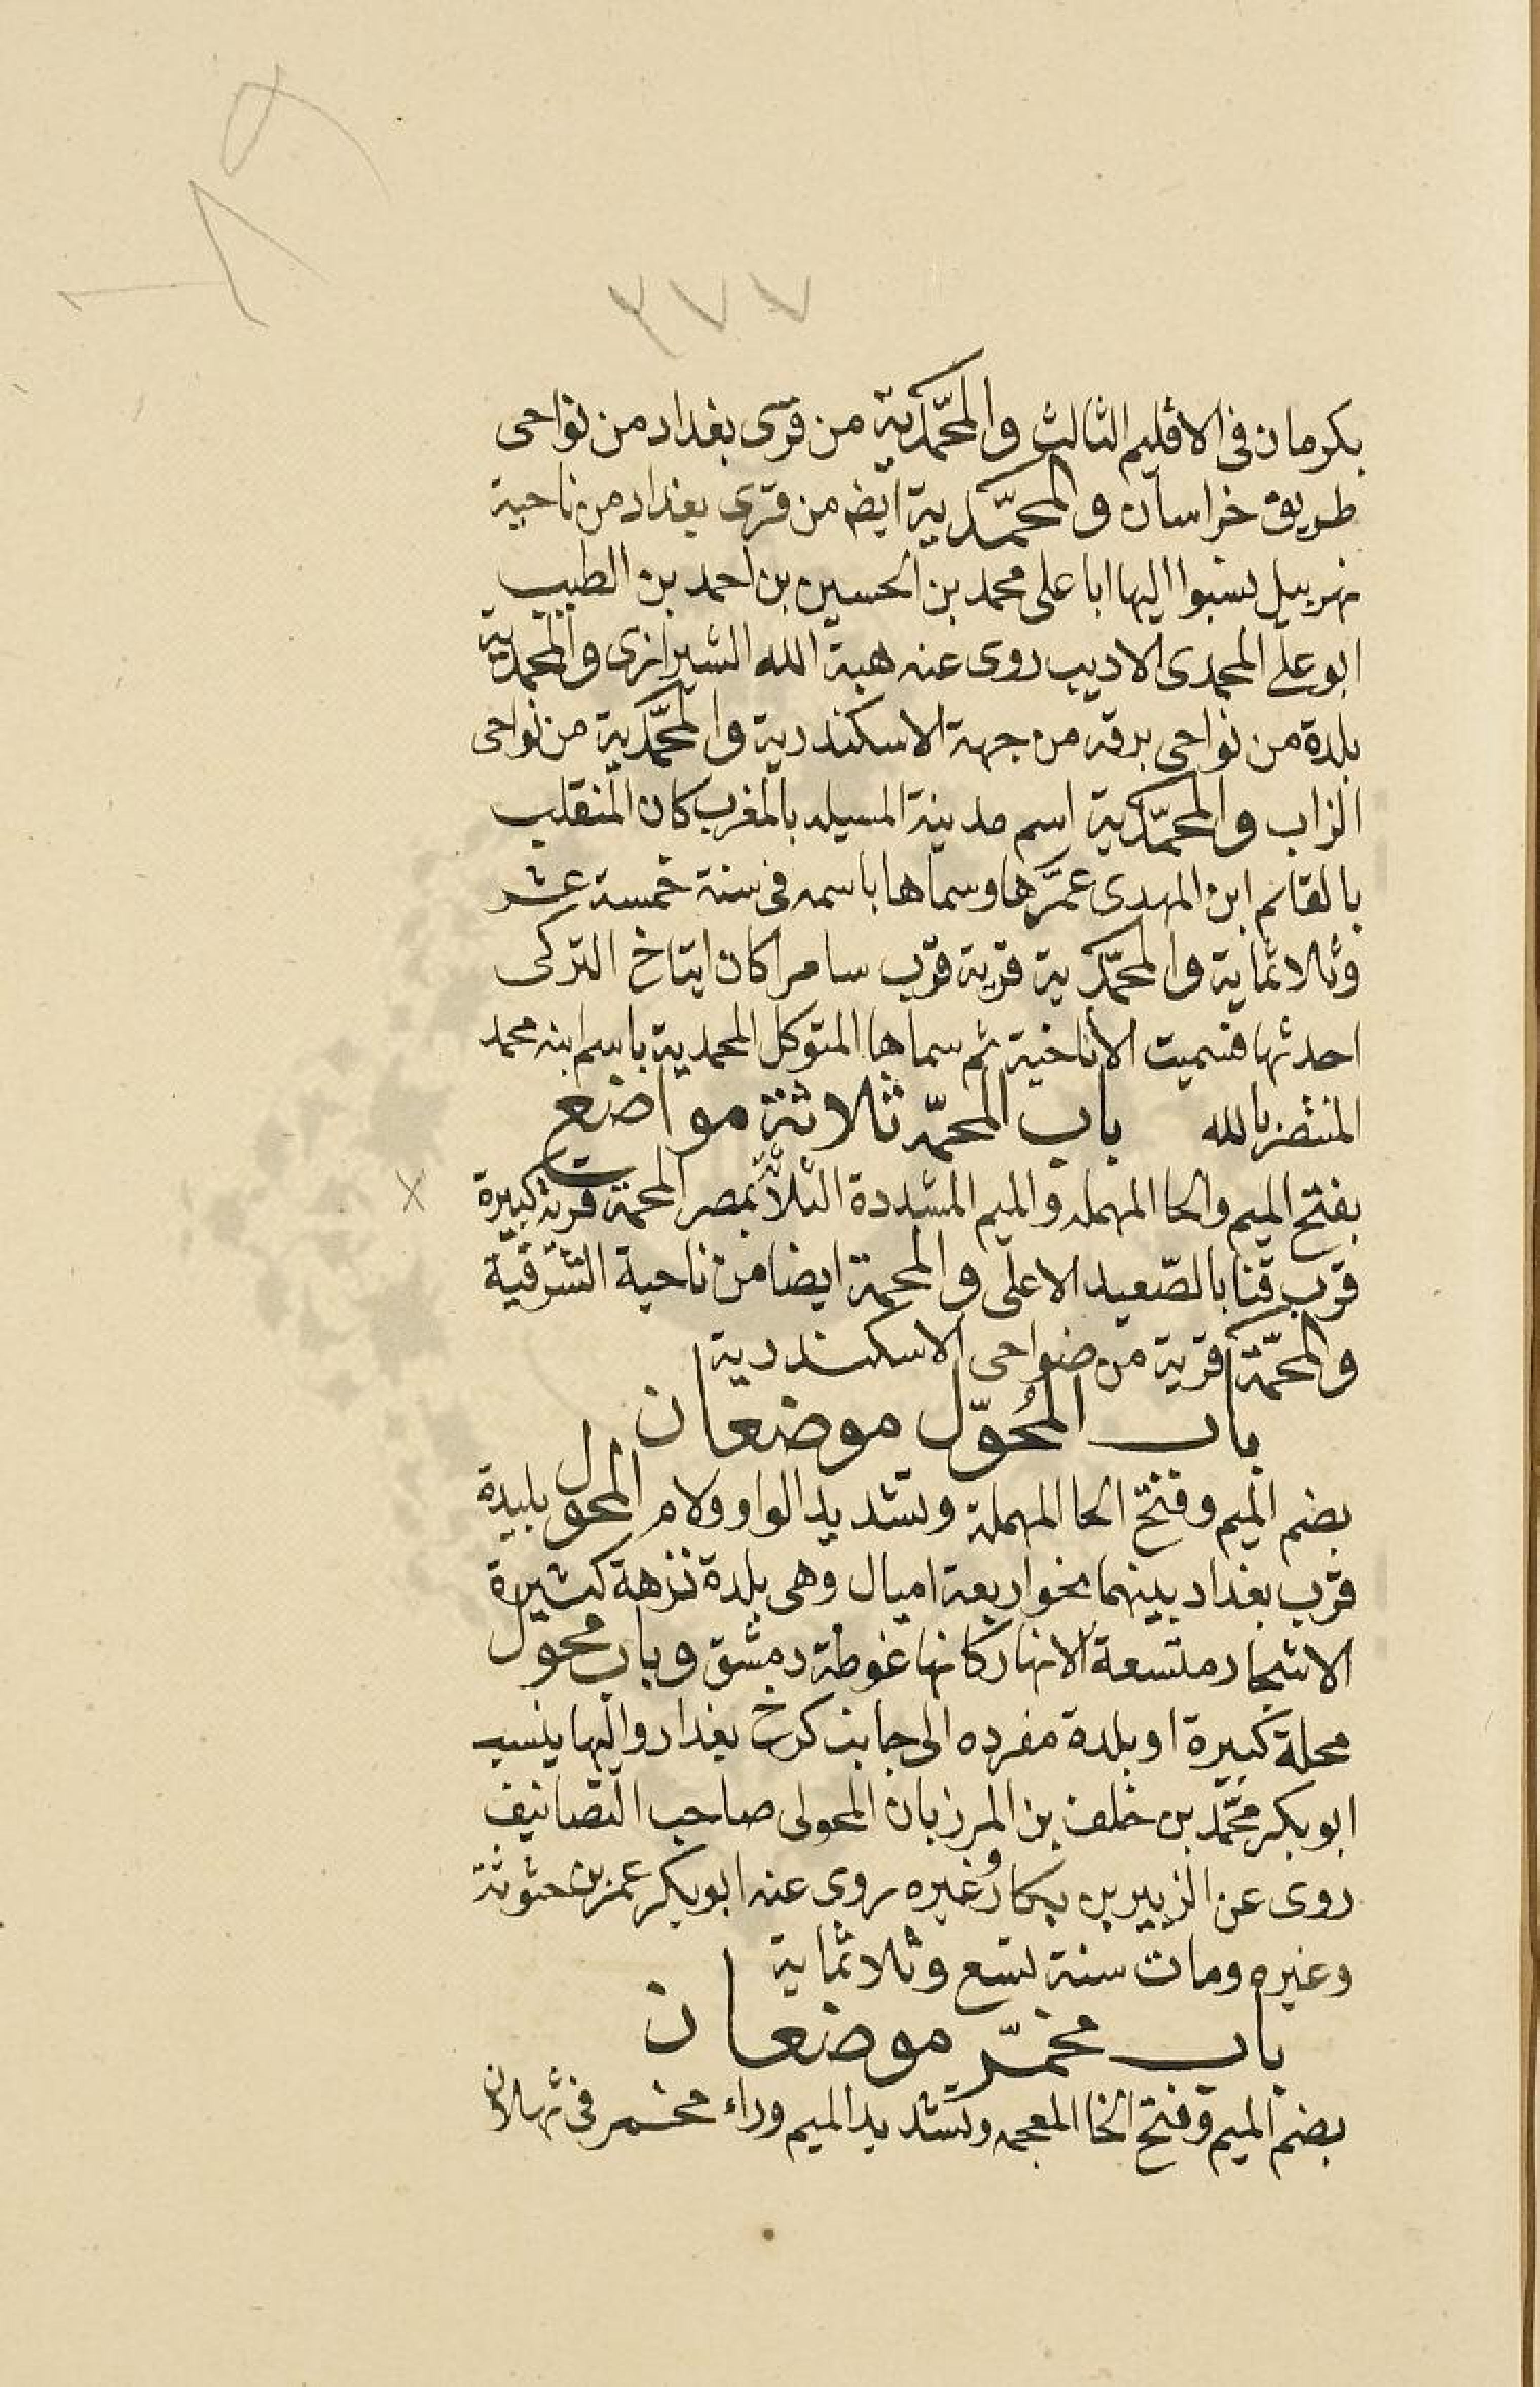 ٣٧٧
بكرمان فى الاقليم الثالث والمحمّدية من قرى بغداد من نواحى
طريق خراسان والمحمّدية ايض من قرى بغداد من ناحية
نهر بيل نسبوا اليها ابا على محمد بن الحسين بن احمد بن الطبيب
ابو على المحمدى الاديب روى عنه هبة الله الشيرازى والمحمدية
بلدة من نواحى برقة من جهة الاسكندرية والمحمّدية من نواحى
الزاب والمحمّدية اسم مدينة المسيله بالمغرب كان المتقلب
بالقائم ابن المهدى عمّرها وسماها باسمه فى سنة خمسة عشر
وثلاثماية والمحمّدية قرية قرب سامرا كان ايتاخ التركى
احدثها فسميت الايتاخية ثم سماها المتوكل المحمدية باسم ابنه محمد
المنتصر بالله باب المحمّه ثلاثة مواضع
بفتح الميم والحا المهمله والميم المشددة الثلاثة بمصر المحمة قرية كبيرة
قرب قنا بالصّعيد الاعلى والمحمة ايضا من ناحية الشرقية
والمحمّة قرية من ضواحى الاسكندرية
باب المُحوّل موضعان
بضم الميم وفتح الحا المهملة وتشديد الواو ولام المحول بليدة
قرب بغداد بينهما نحو اربعة اميال وهى بلدة نزهة كثيرة
الاشجار متسعة الانهار كانها غوطة دمشق وباب محول
محلة كبيرة او بلدة مفرده الى جانب كرخ بغداد واليها ينسب
ابو بكر محمّد بن خلف بن المرزبان المحولى صاحب التصانيف
روى عن الزبير بن بكار وغيره روى عنه ابو بكر عمر بن حثوثة
وغيره ومات سنة تسع وثلاثماية
باب مخمّر موضعان
بضم الميم وفتح الخا المعجمه وتشديد الميم وراء مخمر فى